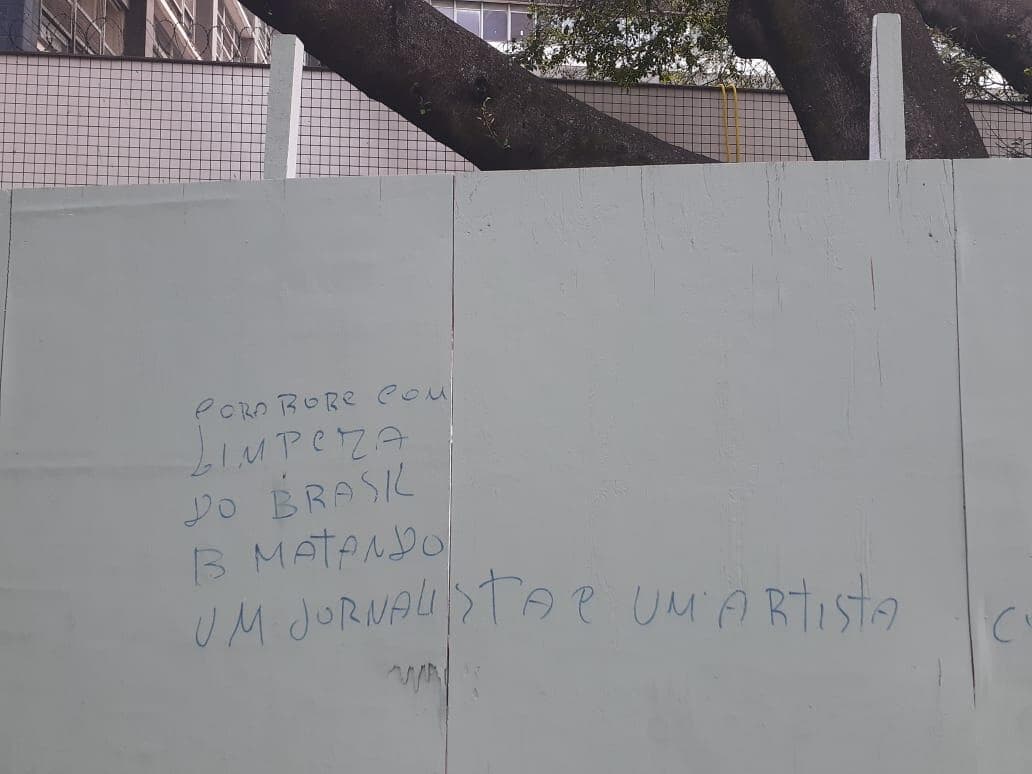 COM
LIMPEZA
DO BRASIL
B MATANDO
UM JORNALISTA E UM ARTISTA